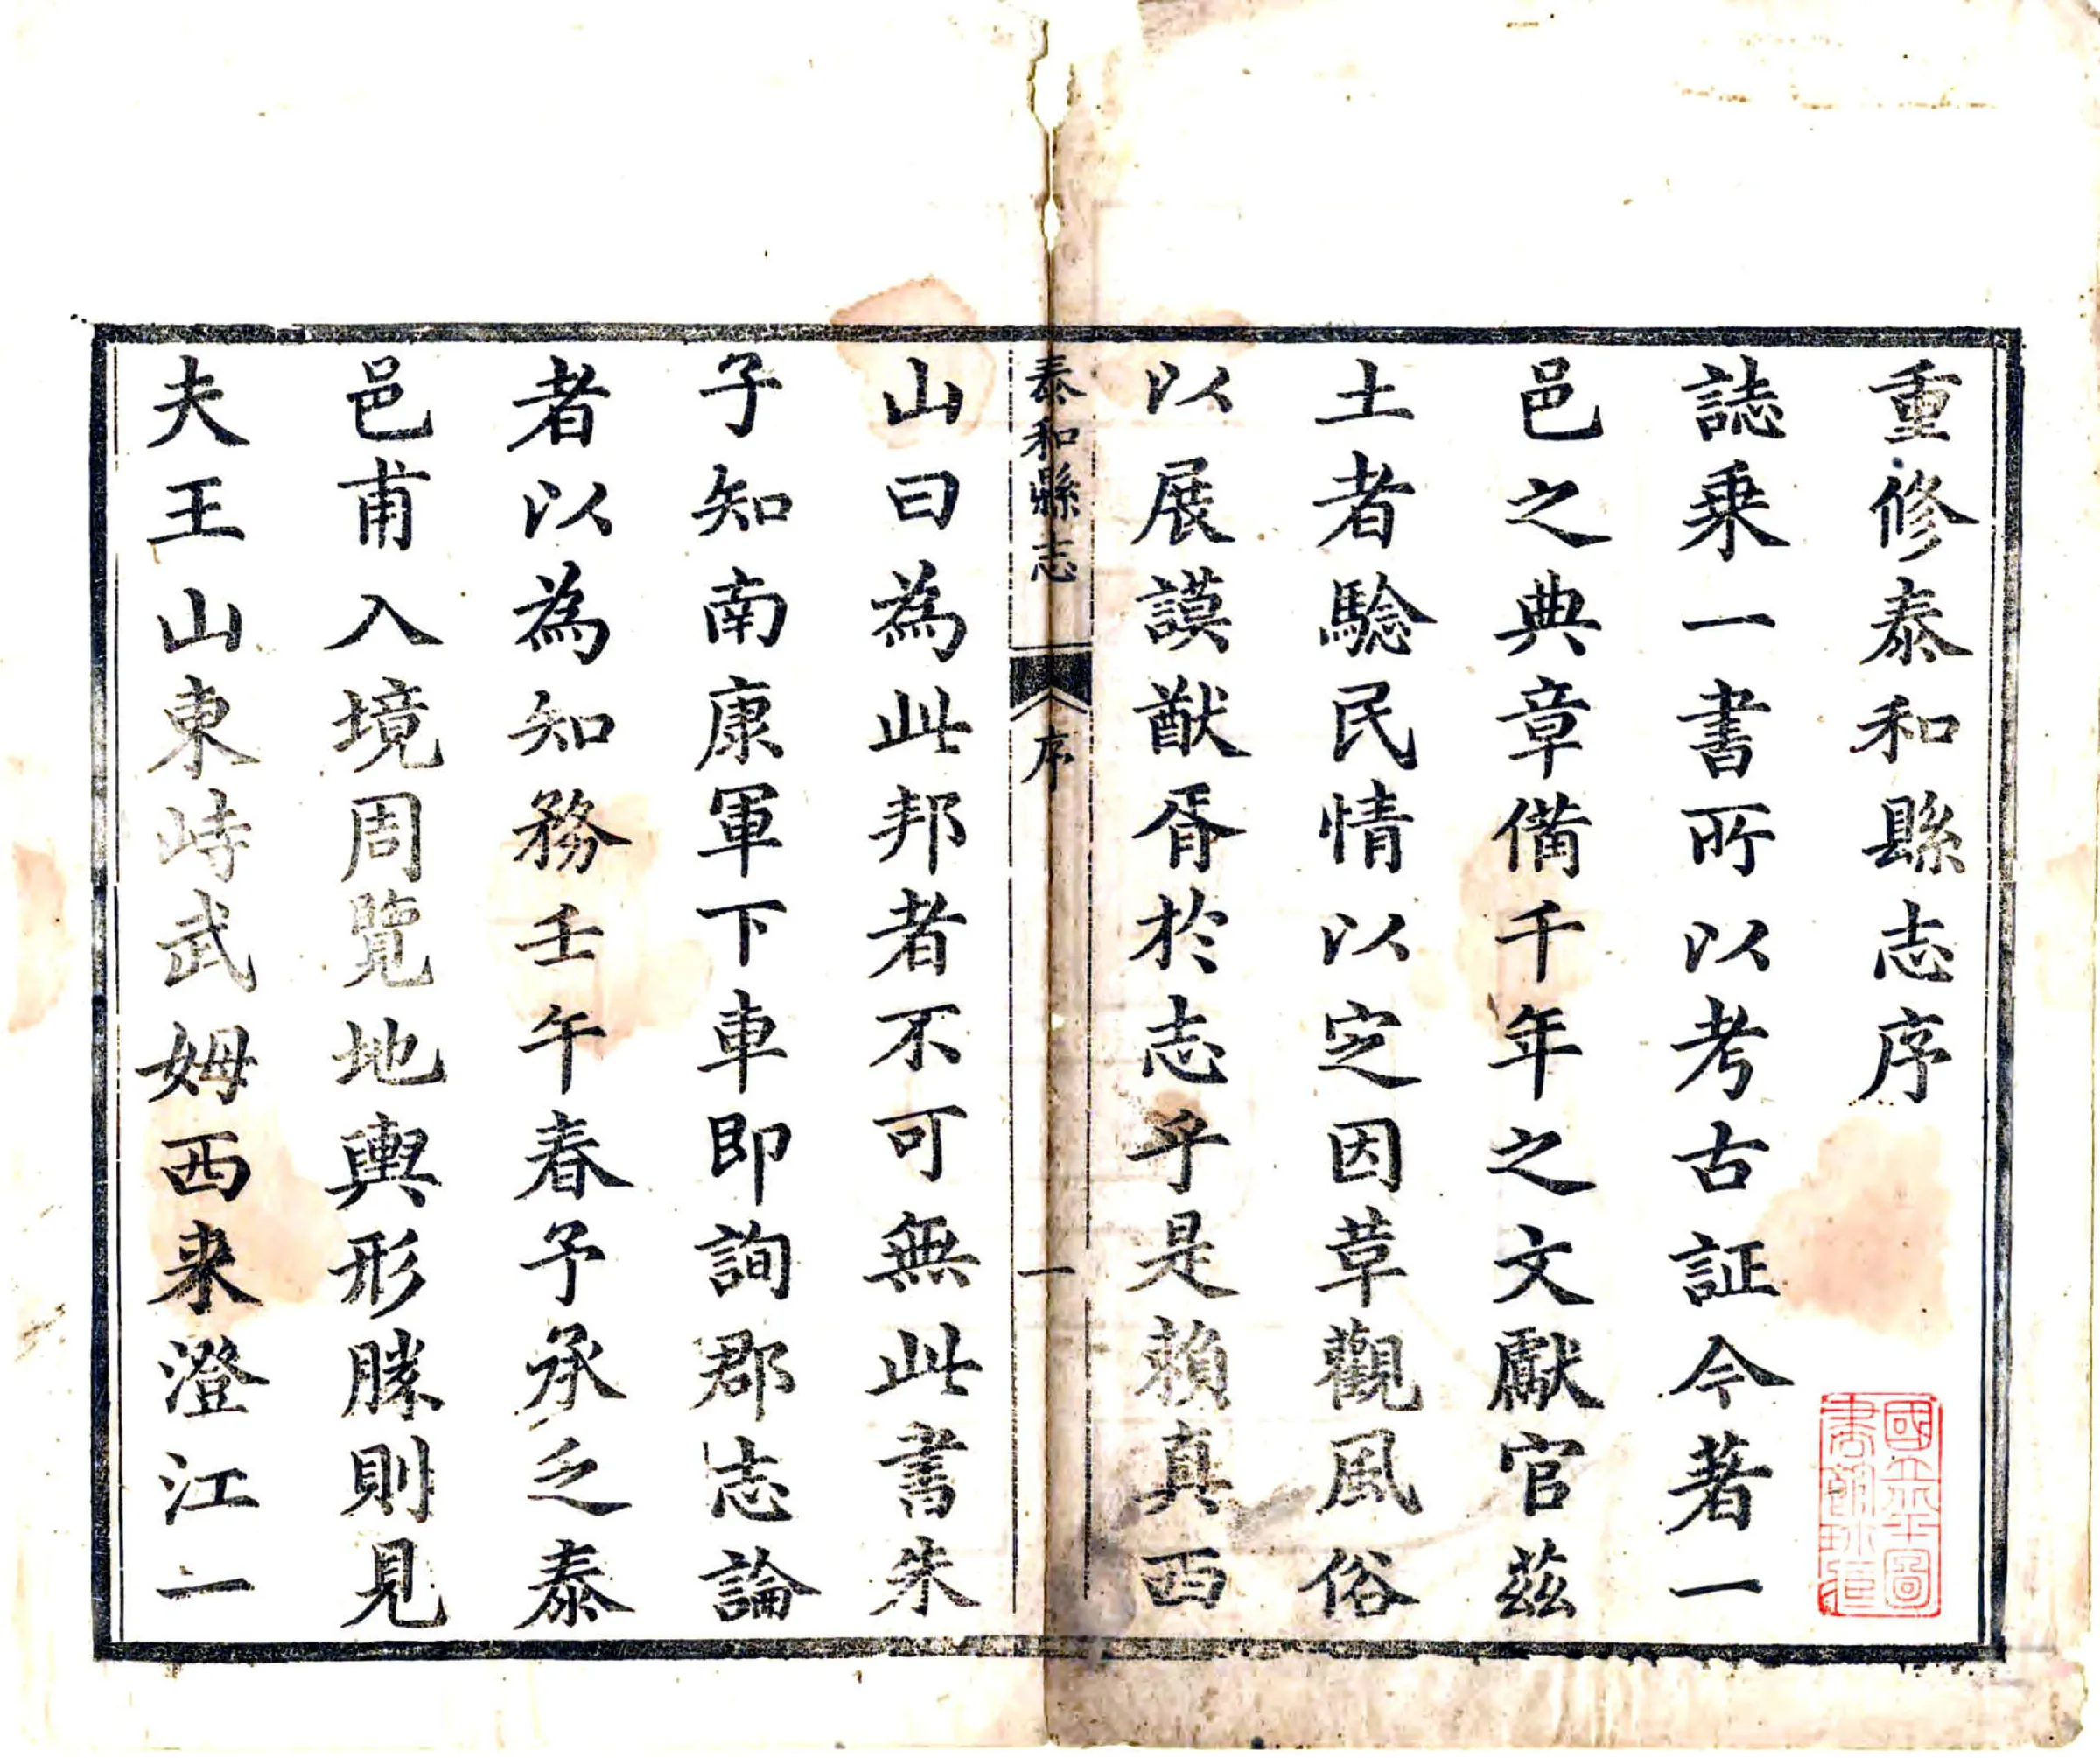 重修泰和縣志序
誌乗一書所以考古証今著一
邑之典章備千年之文獻官茲
土者騐民情以定因革觀風俗
以展謨猷胥於志乎是賴真西
泰和縣志
序
一
山曰為此邦者不可無此書朱
子知南康軍下車即詢郡志論
者以為知務壬午春予承乏泰
邑甫入境周覽地輿形勝則見
夫王山東峙武姆西来澄江一
國立北平圖
書館珍藏